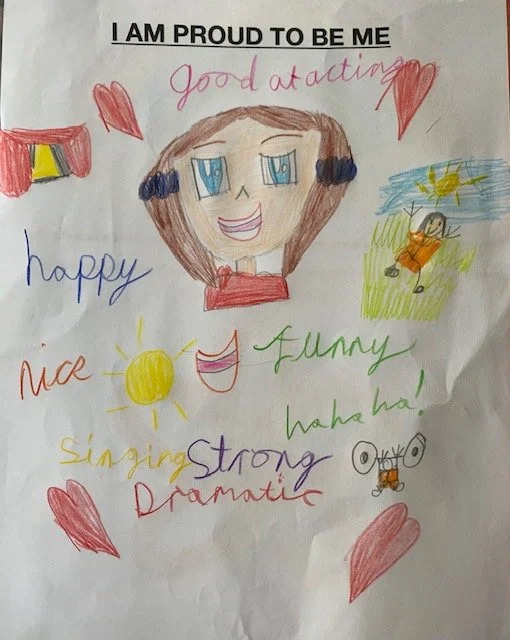 I AM PROUD TO BE ME
good at acting
happy
nice
funny
hahaha!
Singing Strong
Dramatic